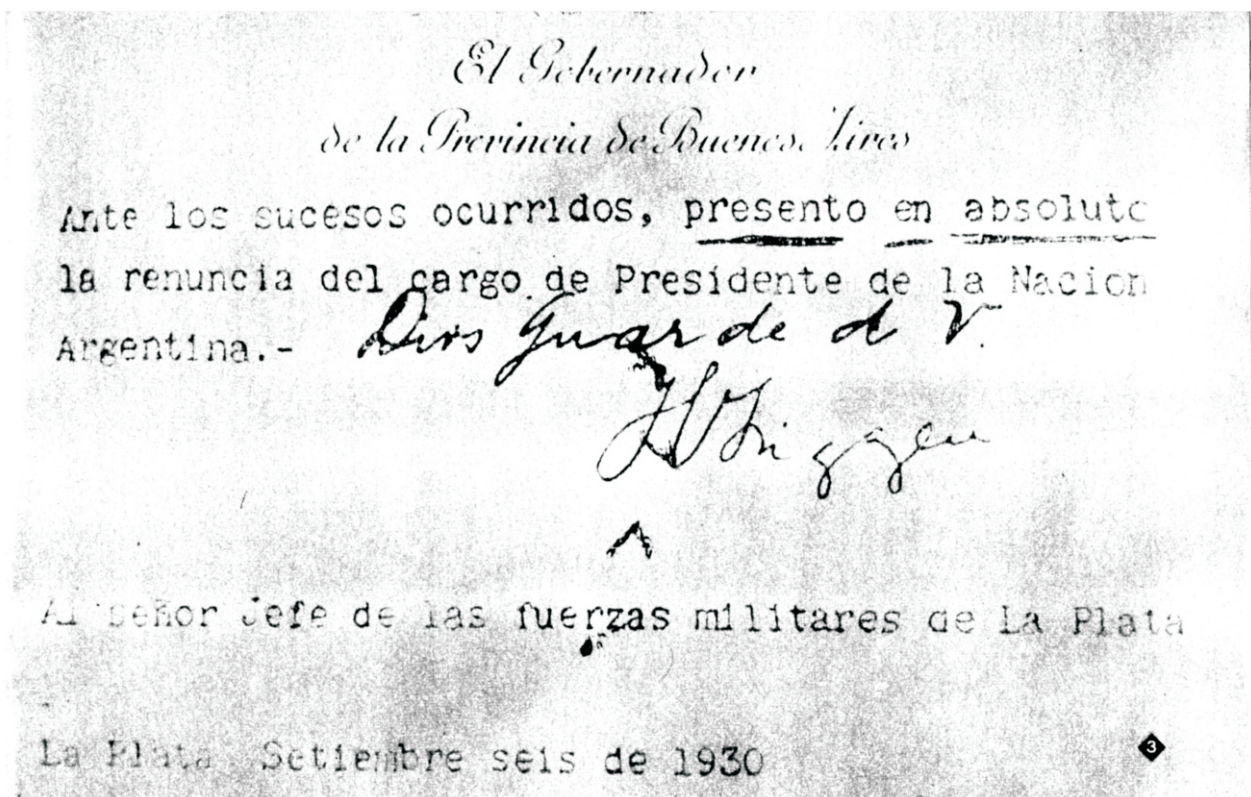 El Gobernador
de la Provincia de Buenos Aires
Ante los sucesos ocurridos, presento en absoluto
la renuncia del cargo de Presidente de la Nacion
Argentina.- Dios Guarde a V.
H Yrigoyen
Al Señor Jefe de las fuerzas militares de La Plata
La Plata Setiembre seis de 1930
3